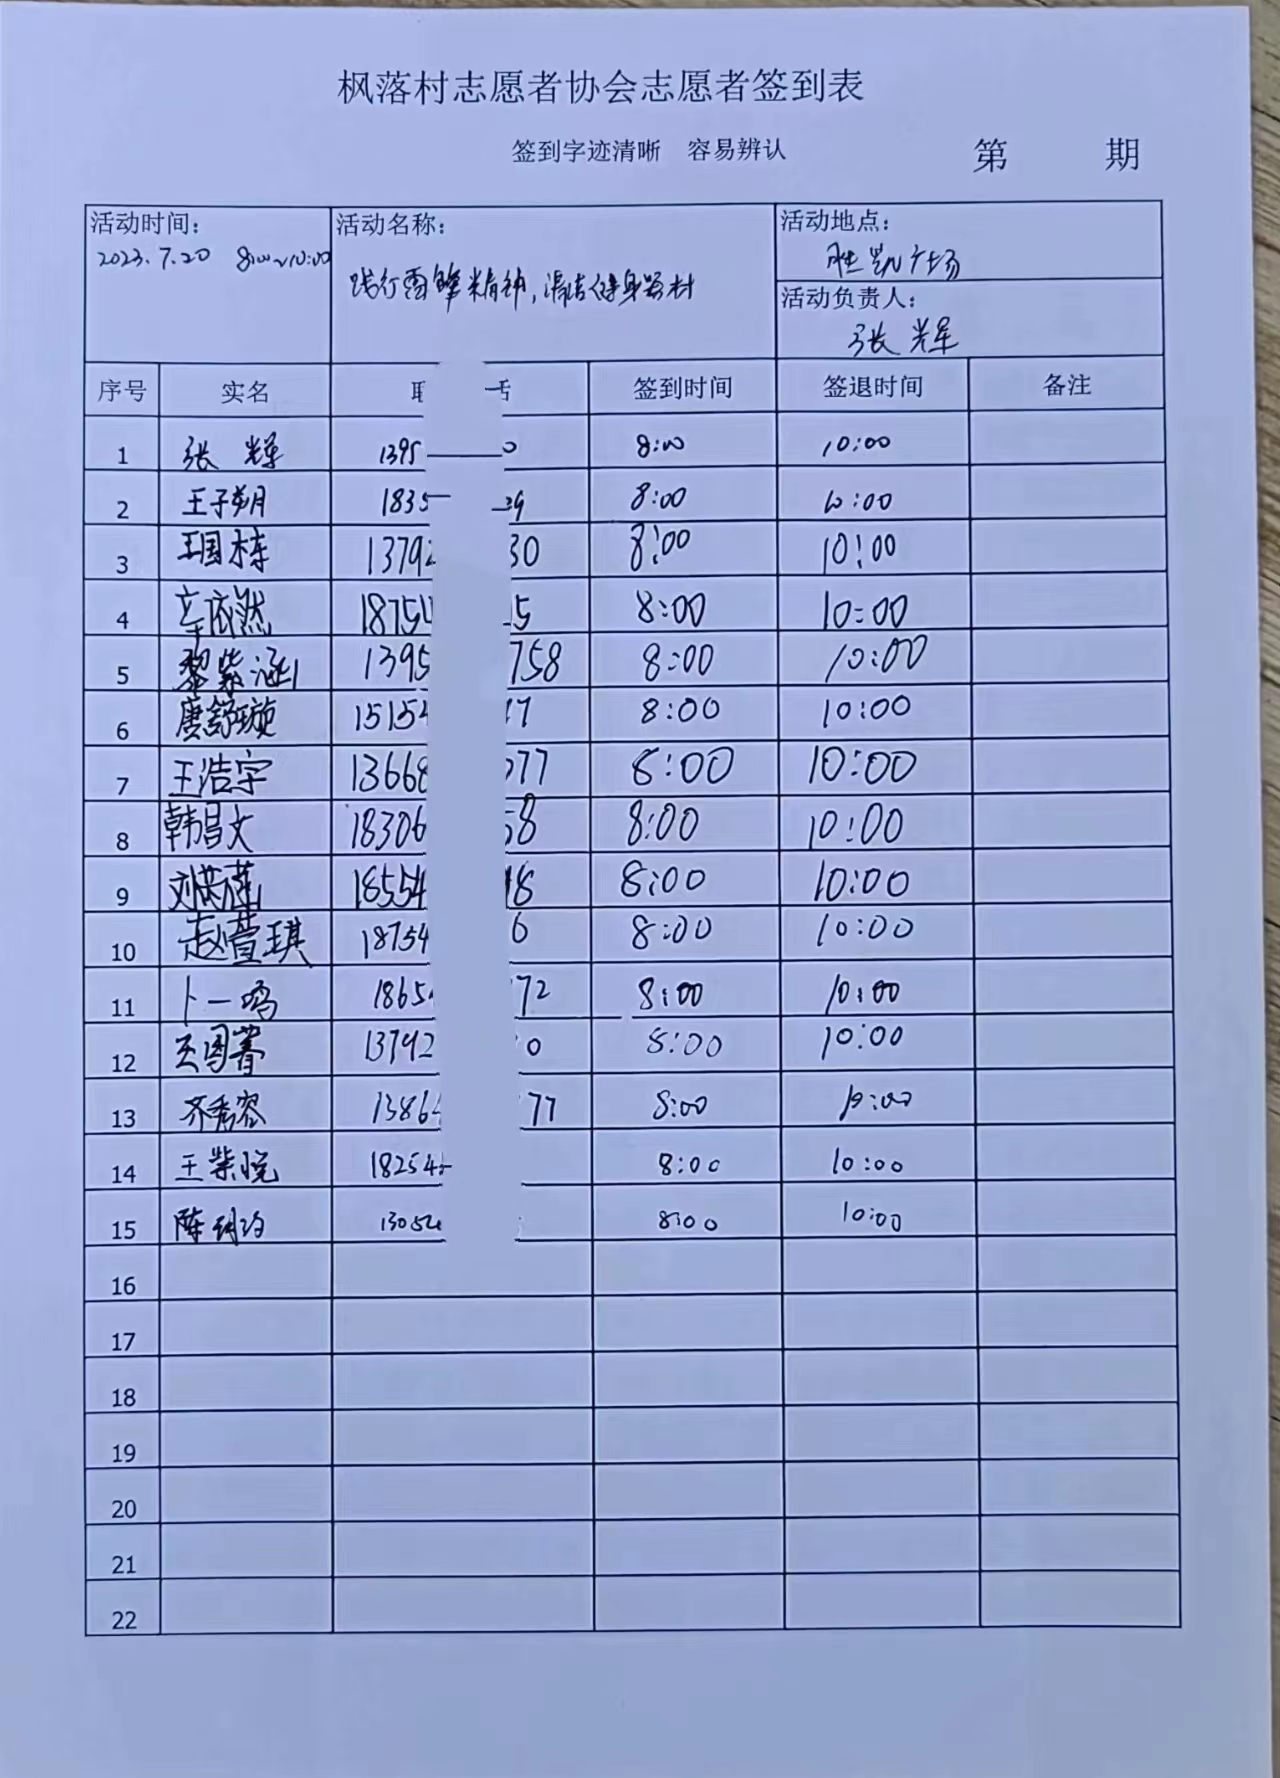 枫落村志愿者协会志愿者签到表
签到字迹清晰 容易辨认 第 期
活动时间: 活动名称: 活动地点:
2023.7.20 8:00~10:00 践行雷锋精神,清洁健身器材 胜凯广场
活动负责人:
张辉
序号 实名 签到时间 签退时间 备注
1 张辉 1395 0 8:00 10:00
2 王子朔 1835 39 8:00 10:00
3 王国栋 13792 30 8:00 10:00
4 辛依然 18754 5 8:00 10:00
5 黎紫涵 1395 758 8:00 10:00
6 唐舒璇 15154 7 8:00 10:00
7 王浩宇 13668 077 8:00 10:00
8 韩昌文 18306 58 8:00 10:00
9 18554 18 8:00 10:00
10 赵萱琪 18754 6 8:00 10:00
11 卜一鸣 1865 72 8:00 10:00
12 13792 0 8:00 10:00
13 齐秀容 1386 77 8:00 10:00
14 王紫悦 18254 8:00 10:00
15 1305 8:00 10:00
16
17
18
19
20
21
22